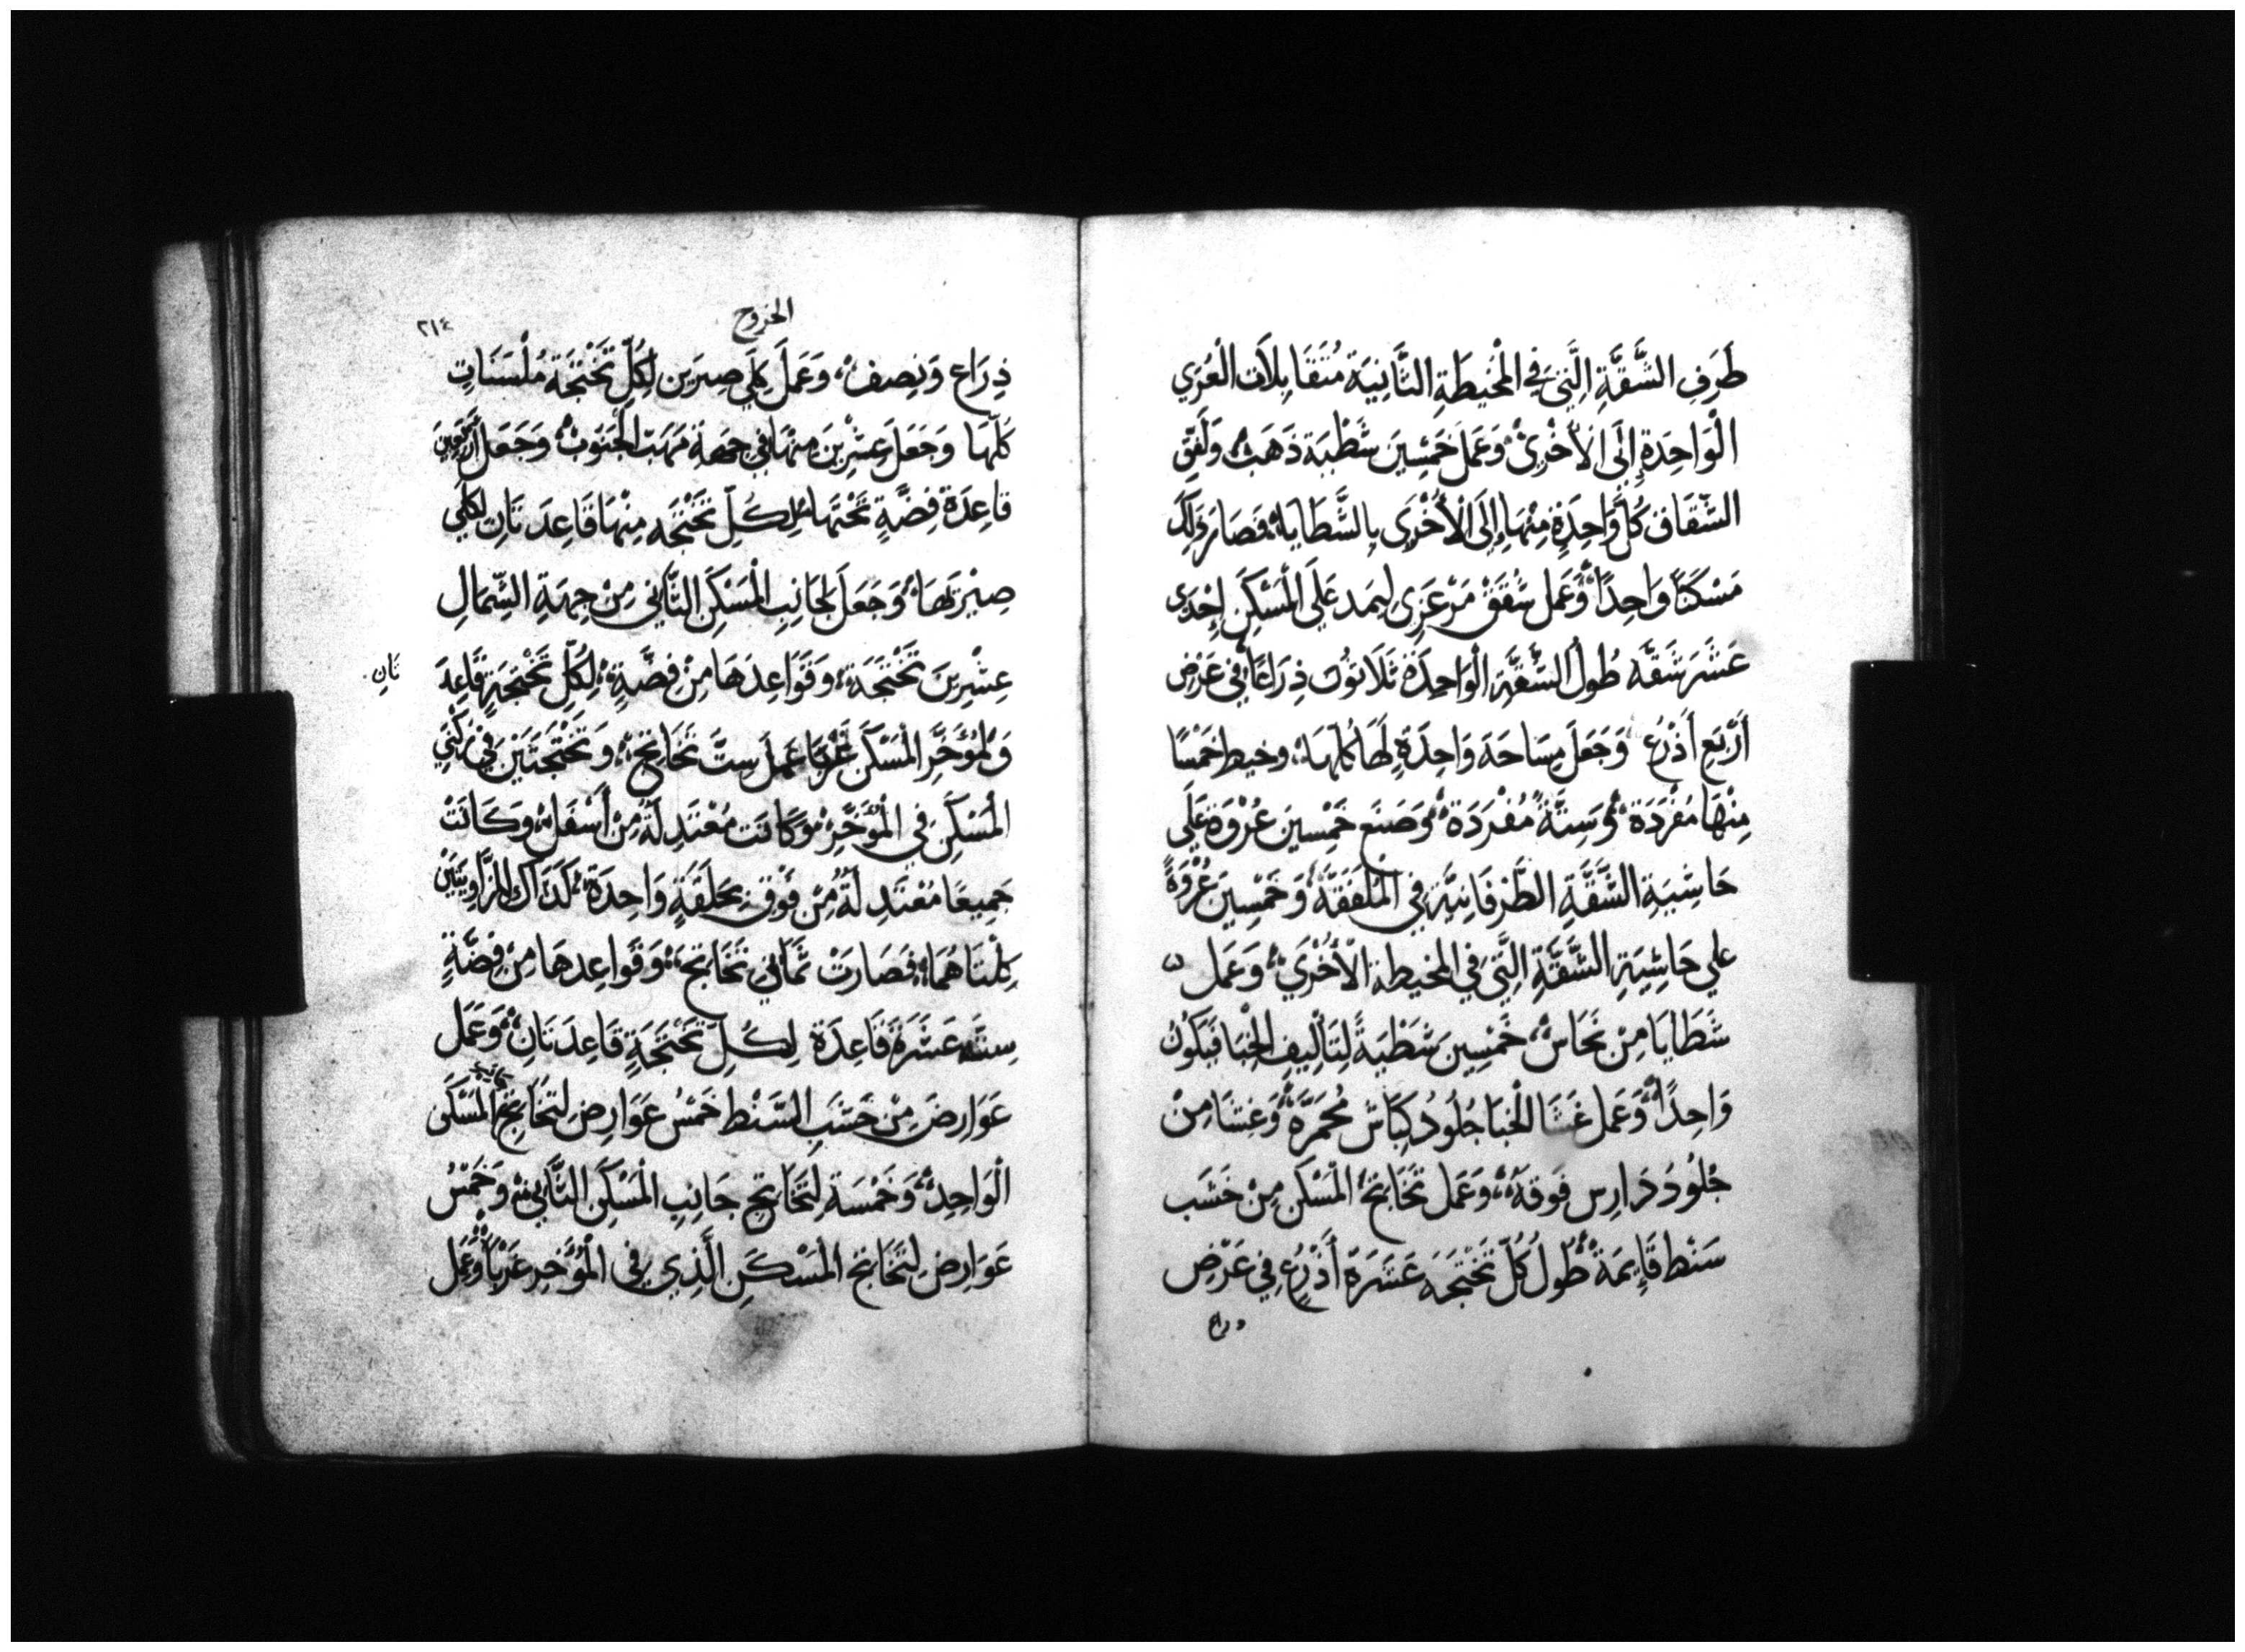 طَرَفِ الشَّقَّةِ الَّتِي فِي الْمُخَيطَةِ الثَّانِيَة مُتَقَابِلَات الْعُرَي
الْوَاحِدَةِ إِلَى الْأُخْرِيْ وَعَمَلَ خَمْسِينَ شَظْبَة ذَهَبْ وَلَفَّق
الشّقَاق كُلَّ وَاحِدَةٍ مِنْهَا إِلَى الْأُخْرَى بِالشَّطَايَا فَصَارَ ذَلِكَ
مَسْكَنًا وَاحِدًا وَعَمل شُقَقْ مَرْعَزِى لِيمَد عَلَى الْمَسْكَنِ إِحْدَى
عَشَرَ شَقَّه طُولُ الشَّقَّةِ الْوَاحِدَة ثَلَاثُون ذِرَاعًا فِي عَرْضِ
أَرْبَعِ أَذْرُعْ وَجَعَلَ مِسَاحَة وَاحِدَةِ لَهَا كُلِّهَا وخيط خَمْسًا
مِنْهَا مُفْرَدَة وَسِتَّةً مُفْرَدَة وَصَنَعَ خَمْسِينَ عُرْوَة عَلَي
حَاشِيَةِ الشَّقَّةِ الطَّرْفَانِيَّةِ فِي الْمُلَفَّقَة وَخَمْسِينَ عُرْوَةً
علي حَاشِيَةِ الشَّقَّةِ الَّتِي فِي المخيطة الْأُخْرَي وَعَمل
شَظَايَا مِنْ نُحَاسْ خَمْسِينَ شَظْيَةً لِتَأْلِيفِ الْخِبَا فَيَكُونُ
وَاحِدًا وَعَمل غَشَا لِلْخِبَا جُلُودُ كِبَاشْ مُحَمَّرَة وَغِشَا مِنْ
جُلُودُ دَارِس فَوقهُ وَعَمل تَخَاتِجْ الْمَسْكَن مِنْ خَشَب
سَنْط قَايِمَةْ طُولُ كُلّ تَخْتَجَه عَشَرَة أَذْرُعِ فِي عَرْضِ
دراع
الخروج
٢١٤
ذِرَاع وَنِصف وَعَمَلَ كِلَي صِبرَين لِكُلِّ تَخْتَجَة مُلْسَنَاتٍ
كُلّهَا وَجَعَلَ عِشْرِينَ مِنْهَا فِي جِهَةِ مَهَبّ الْجَنُوبْ وَجَعَلَ أَرْبَعِينَ
قاعِدَة فِضَّةٍ تَحْتَهَا لِكُلِّ تَخْتَجَه مِنْهَا قَاعِدَتَانِ لِكِلَي
صِبْرَتَهَا وَجَعَلَ لِجَانِبِ الْمَسْكَنِ الثَّانِي مِنْ جِهَةِ الشِّمَالِ
عِشْرِينَ تَخْتَجَة وَقَوَاعِدَهَا مِنْ فِضَّةٍ لِكُلِّ تَخْتَجَةٍ قَاعِدَ
تَانِ
وَلِمُؤَخَّرِ الْمَسْكَنِ غَرْبًا عَمِلَ سِتَّ تَخَاتِجْ وَتَخْتَجَتَيْنِ فِي رُكْنَي
الْمَسْكَنِ فِي الْمُؤَخَّرِ وَكَانَت مُعْتَدِلَةً مِنْ أَسْفَل وَكَانَتْ
جَمِيعًا مُعْتَدِلَةً مِنْ فَوْقِ بِحَلَقَةٍ وَاحِدَة كَذَاك الزَّاوِيَتَيْن
كِلْتَاهُمَا فَصَارَتْ ثَمَانِي تَخَاتِجَ وَقَوَاعِدهَا مِنْ فِضَّةٍ
سِتَّه عَشَرَةَ قَاعِدَة لِكُلِّ تَخْتَجَةٍ قَاعِدَتَانِ وَعَمَل
عَوَارِضَ مِنْ خَشَبِ السَّنْط خَمْسُ عَوَارِض لِتَخَاتِجْ الْمَسْكَن
الْوَاحِد وَخَمْسَة لِتَخَاتِجْ جَانِبِ الْمَسْكَن الثَّانِي وَخَمْسُ
عَوَارِض لِتَخَاتِج الْمَسْكَنِ الَّذِي فِي الْمُؤَخَّرِ غَرْبًا وَعَمَل